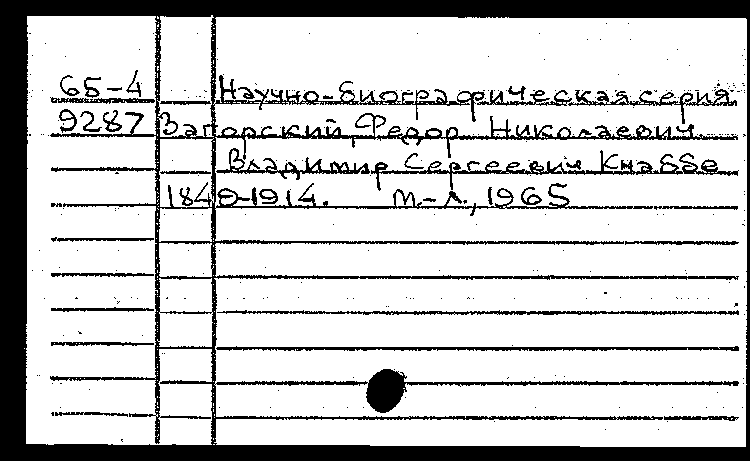 65-4 Научно-биографическая серия
9287 Загорский, Федор Николаевич
Владимир Сергеевич Кнаббе
1849-1914. м-л., 1965